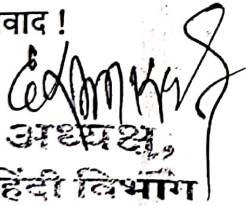 वाद !
अध्यक्ष,
हिंदी विभाग